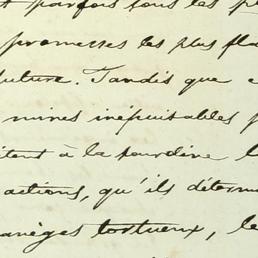 parfois tous les pe
promesses les plus fla
future. Tandis que c
mines inépuisables p
itent à la sourdine l
actions, qu'ils déterm
anèges tortueux, le